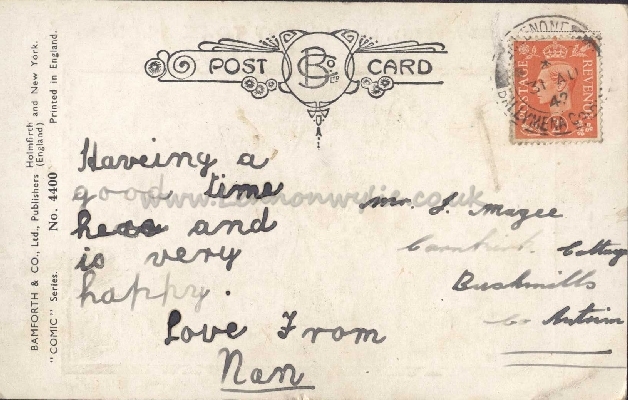 BAMFORTH & CO., Ltd., Publishers Holmfirth and New York.
(England)
"COMIC" Series. No. 4400 Printed in England.
POST BCo LTD CARD
POSTAGE REVENUE
31 AU
BALLYMENA CO.
www. .co.uk
Haveing a
good time
here and
is very
happy.
Love From
Nan
Mr. S. Magee
Cottage
Bushmills
Co Antrim